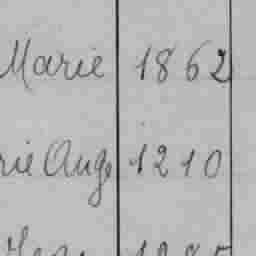 Marie 1862
rie Ange 1210